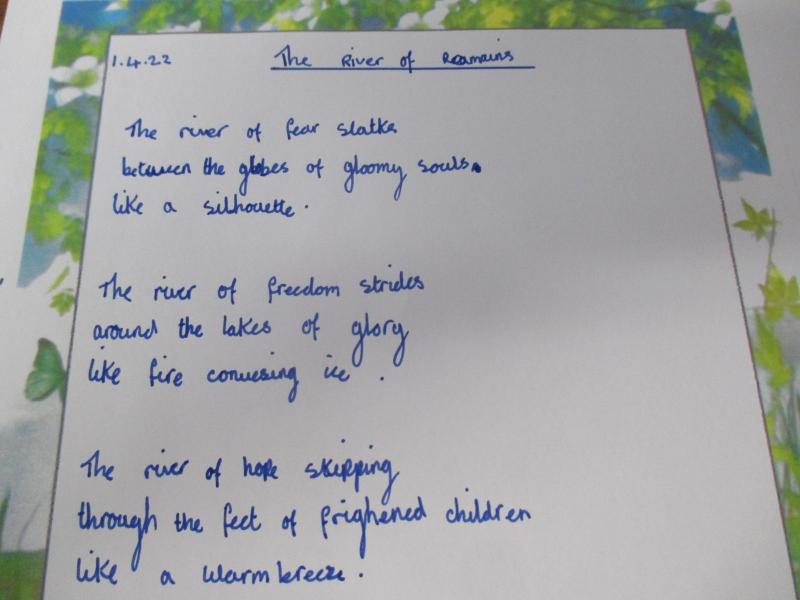 1.4.22
The River of Reamains
The river of fear slatks
between the globes of gloomy souls.
like a silhouette.
The river of freedom strides
around the lakes of glory
like fire convesing ice.
The river of hope skipping
through the feet of frighened children
like a warm breeze.